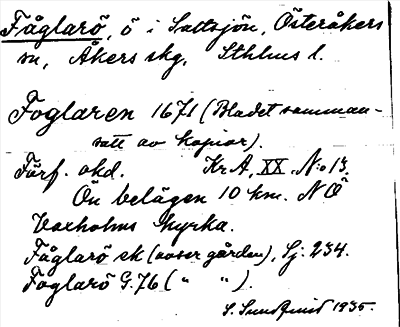 Fåglarö, ö i Saltsjön, Österåkers
sn, Åkers skg, Sthlms l.
Foglaren 1671 (Bladet samman-
satt av kopior).
Förf. okd. Kr A, XX. N:o 13.
Ön belägen 10 km. NÖ
Vaxholms kyrka.
Fåglarö sk (avser gården), Sj: 234.
Foglarö G. 76 ( " " ).
S. Sundquist 1935.